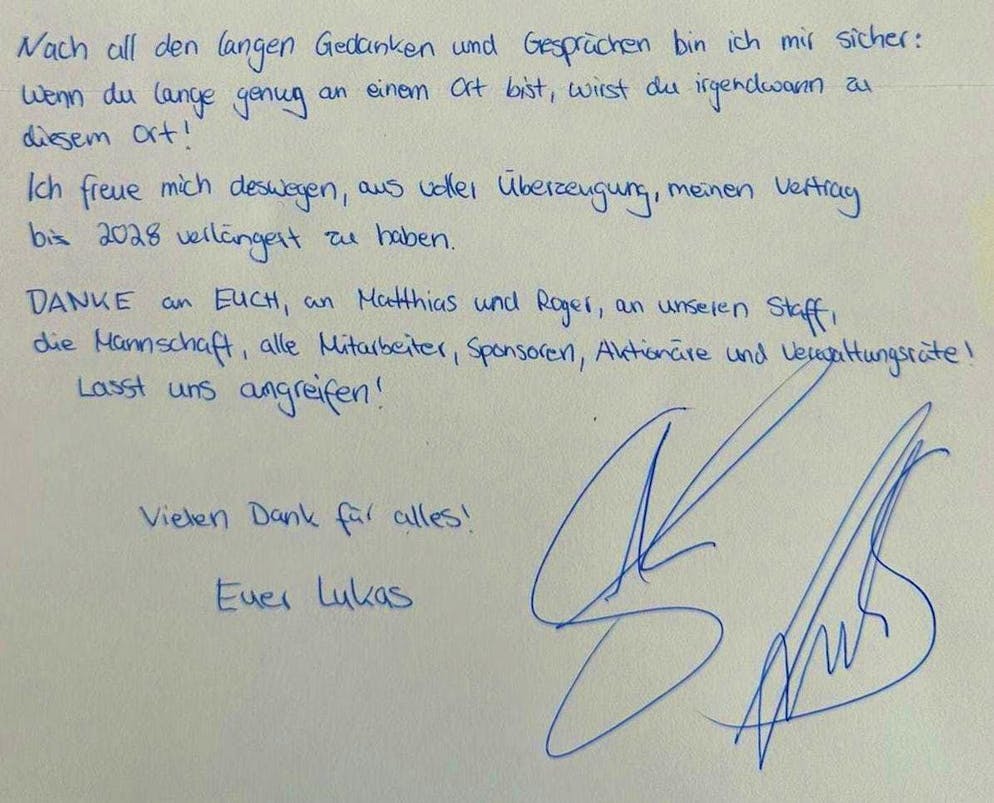 Nach all den langen Gedanken und Gesprächen bin ich mir sicher:
Wenn du lange genug an einem Ort bist, wirst du irgendwann zu
diesem Ort!
Ich freue mich deswegen, aus voller Überzeugung, meinen Vertrag
bis 2028 verlängert zu haben.
DANKE an EUCH, an Matthias und Roger, an unseren Staff,
die Mannschaft, alle Mitarbeiter, Sponsoren, Aktionäre und Verwaltungsräte!
Lasst uns angreifen!
Vielen Dank für alles!
Euer Lukas